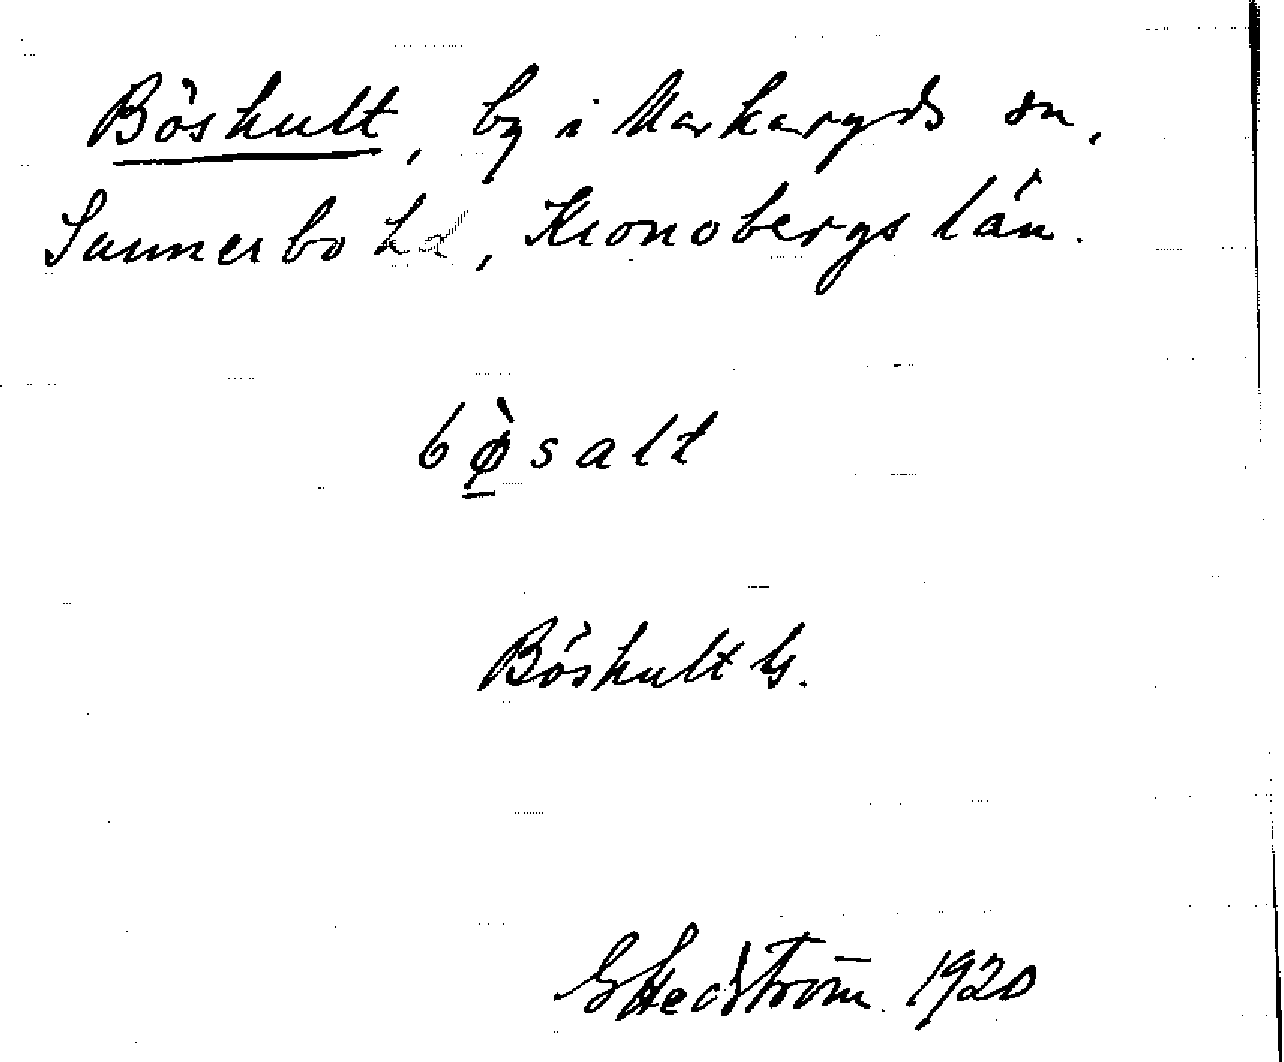 Böshult, by i Markaryds sn,
Sunnerbo hd, Kronobergs län.
bø̀salt
Böshult G.
G Hedström 1920